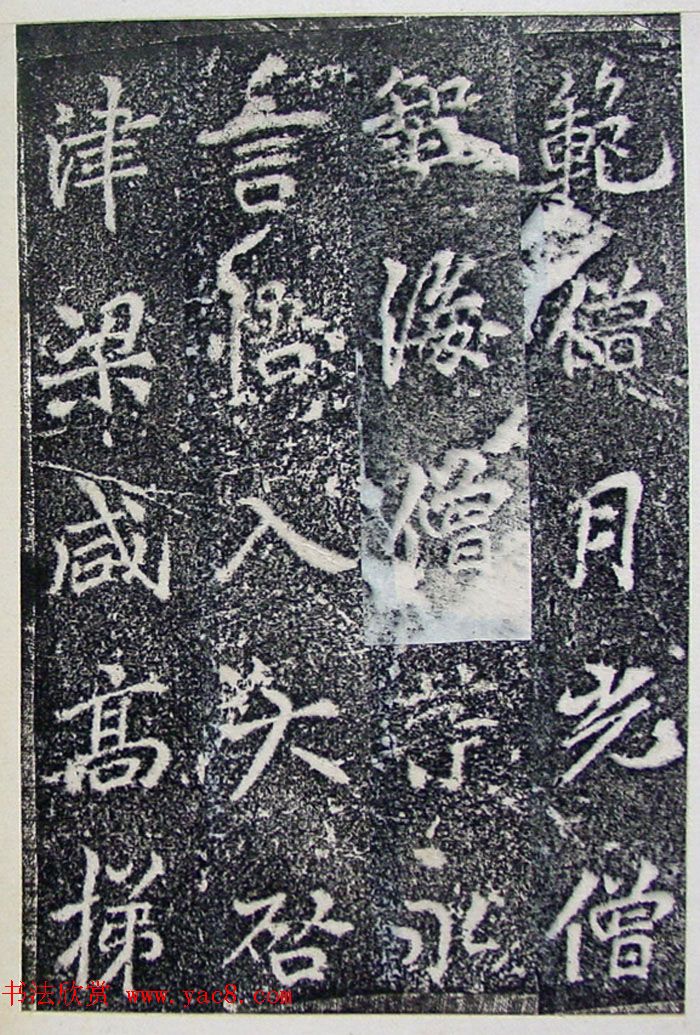 範僧月光僧
海僧
言入启
津梁咸高梯
书法欣赏 www.yac8.com